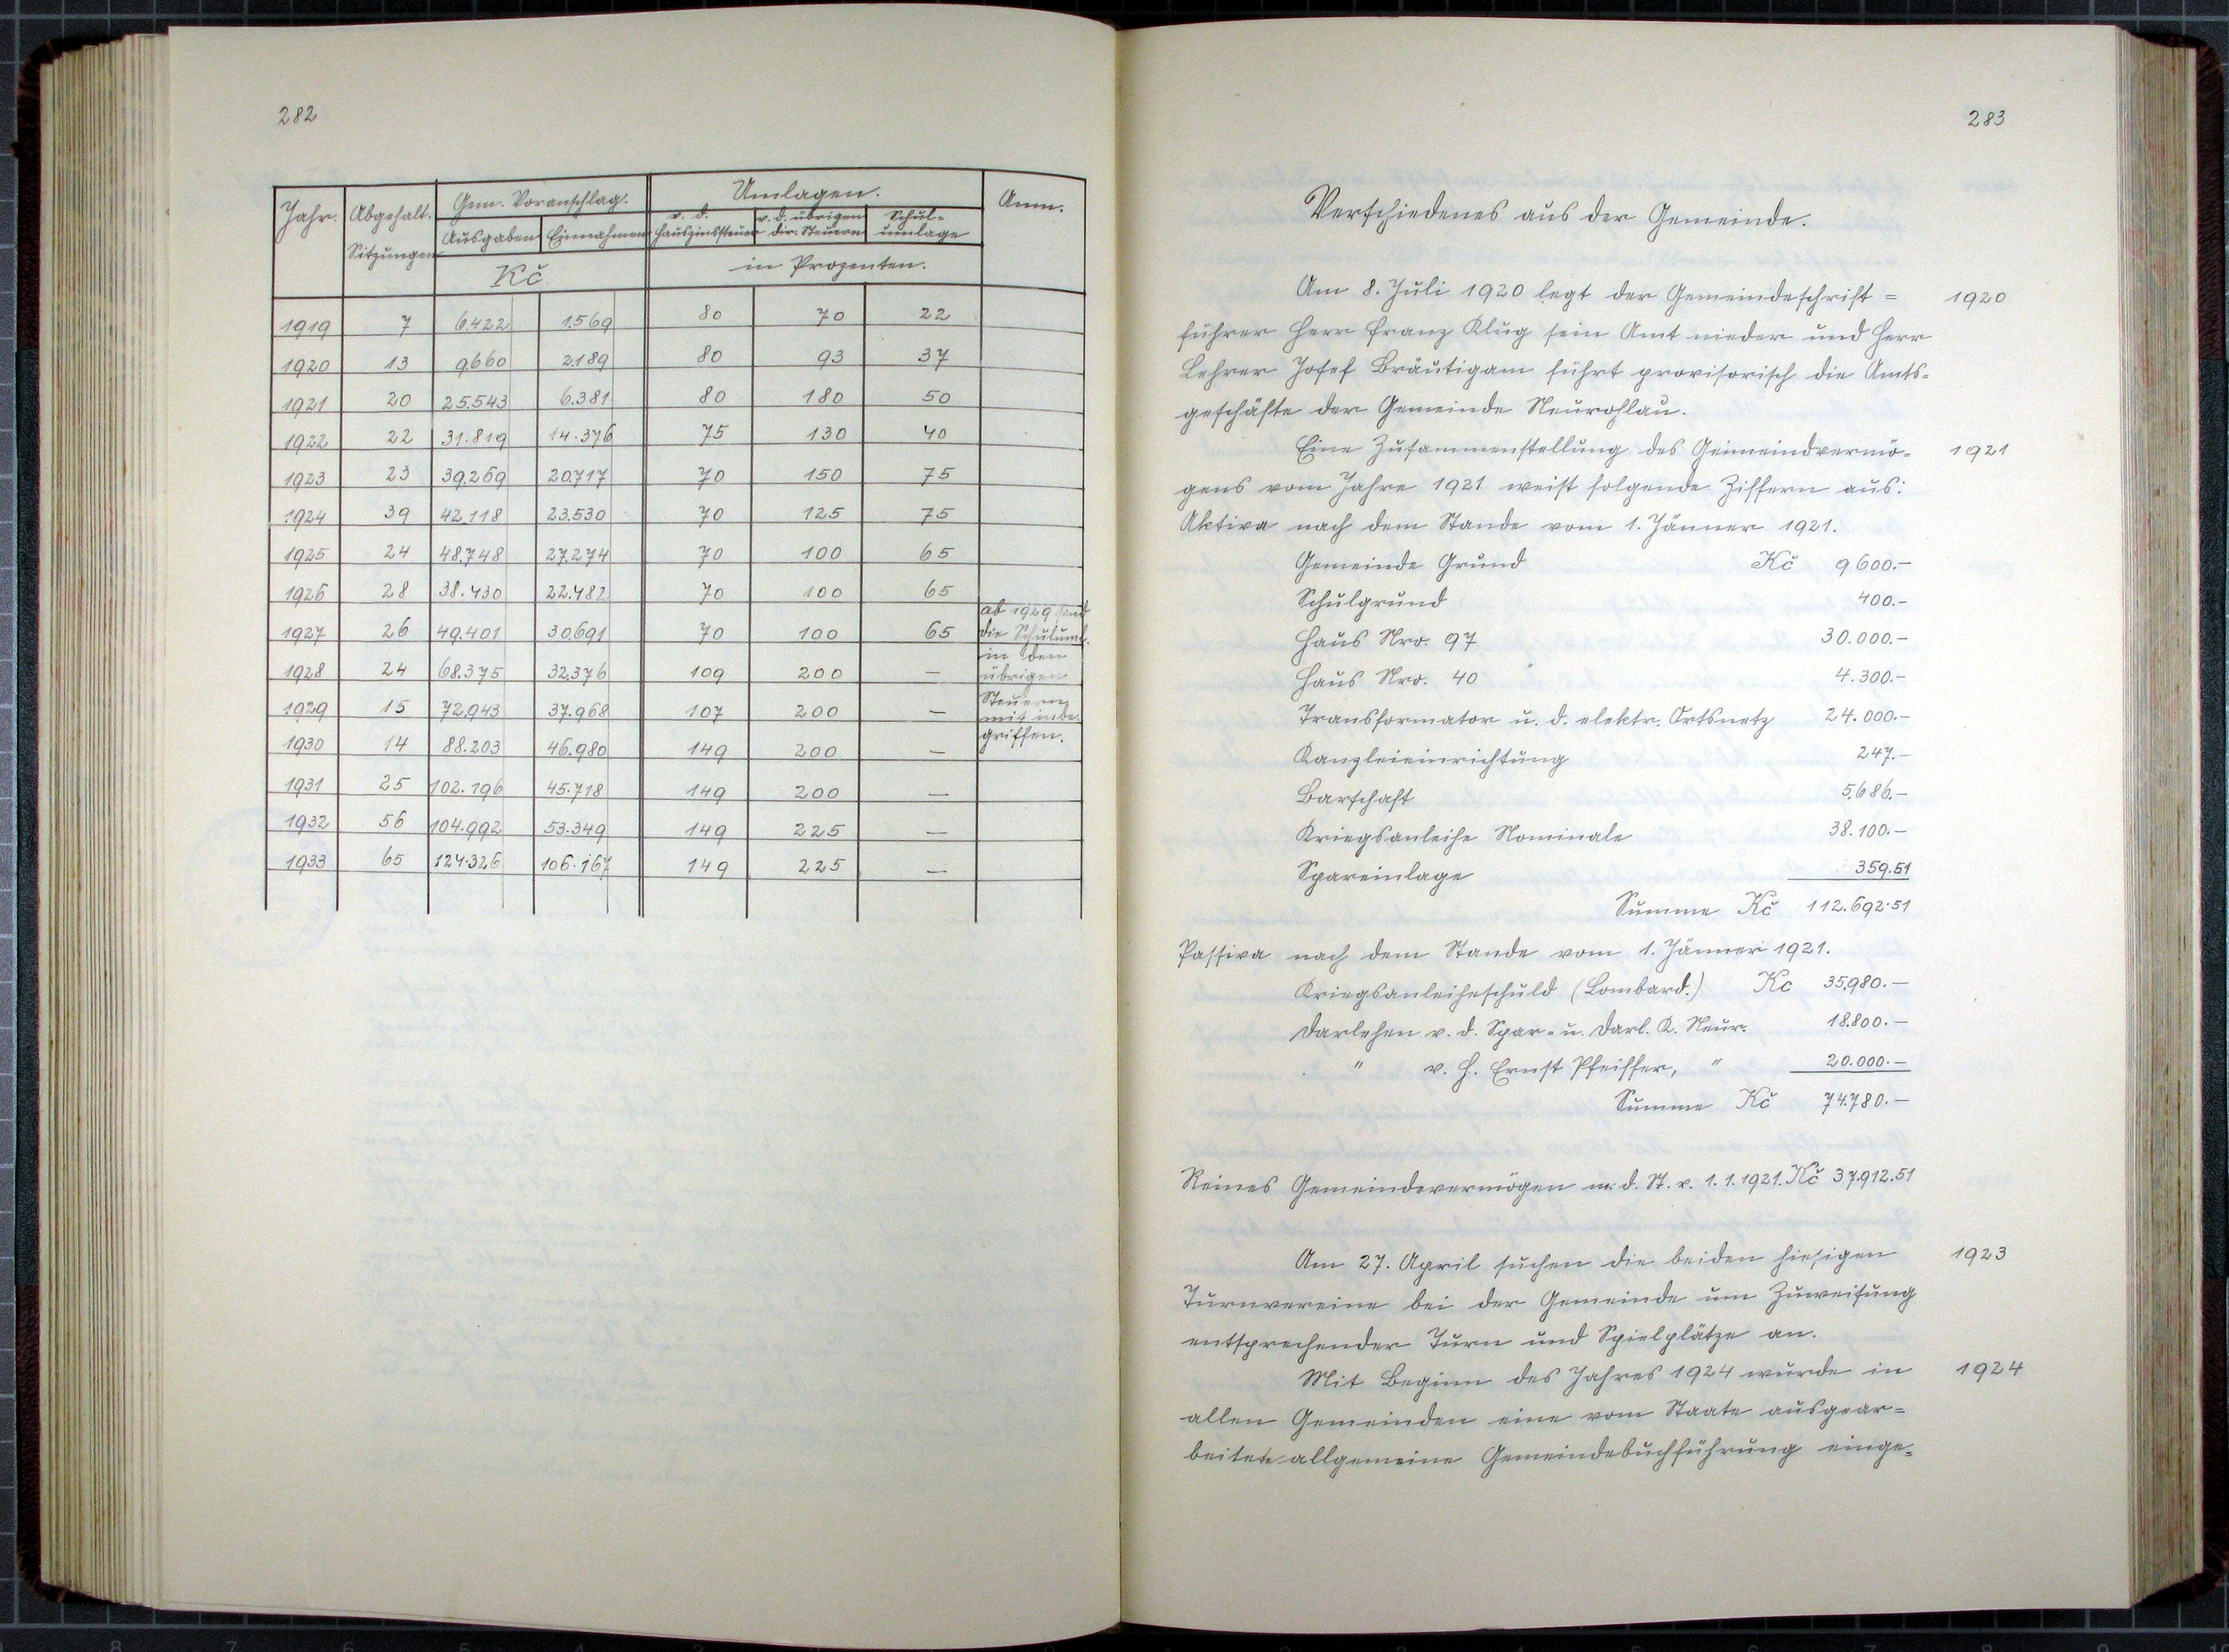 282
Jahr. Abgehalt. Sitzungen Gem. Voranschlag. Umlagen. Anm.
Ausgaben Einnahmen v. d. Hauszinssteuer v. d. übrigen dir. Steuern Schul-umlage
Kč in Prozenten.
1919 7 6.422 1.569 80 70 22
1920 13 9.660 2.189 80 93 37
1921 20 25.543 6.381 80 180 50
1922 22 31.819 14.376 75 130 40
1923 23 39.269 20.717 70 150 75
1924 39 42.118 23.530 70 125 75
1925 24 48.748 27.274 70 100 65
1926 28 38.430 22.482 70 100 65
ab 1929 sind
1927 26 49.401 30.691 70 100 65 die Schuluml.
in den
1928 24 68.375 32.376 109 200 — übrigen
Steuern
1929 15 72.943 37.968 107 200 — mit inbe-
griffen.
1930 14 88.203 46.980 149 200 —
1931 25 102.196 45.718 149 200 —
1932 56 104.992 53.349 149 225 —
1933 65 124.326 106.167 149 225 —
283
Verschiedenes aus der Gemeinde.
Am 8. Juli 1920 legt der Gemeindeschrift= 1920
führer Herr Franz Klug sein Amt nieder und Herr
Lehrer Josef Bräutigam führt provisorisch die Amts=
geschäfte der Gemeinde Neurohlau.
Eine Zusammenstellung des Gemeindvermö= 1921
gens vom Jahre 1921 weist folgende Ziffern aus:
Aktiva nach dem Stande vom 1. Jänner 1921.
Gemeinde Grund Kč 9600.—
Schulgrund 400.—
Haus Nro. 97 30.000.—
Haus Nro. 40 4.300.—
Transformator u. d. elektr. Ortsnetz 24.000.—
Kanzleieinrichtung 247.—
Barschaft 5.686.—
Kriegsanleihe Nominale 38.100.—
Spareinlage 359.51
Summe Kč 112.692.51
Passiva nach dem Stande vom 1. Jänner 1921.
Kriegsanleiheschuld (Lombard.) Kc 35.980.—
Darlehen v. d. Spar- u. Darl. K. Neur. 18.800.—
" v. H. Ernst Pfeiffer, " 20.000.—
Summe Kč 74.780.—
Reines Gemeindevermögen n. d. St. v. 1. 1. 1921. Kč 37.912.51
Am 27. April suchen die beiden hiesigen 1923
Turnvereine bei der Gemeinde um Zuweisung
entsprechender Turn und Spielplätze an.
Mit Beginn des Jahres 1924 wurde in 1924
allen Gemeinden eine vom Staate ausgear=
beitete allgemeine Gemeindebuchführung einge=